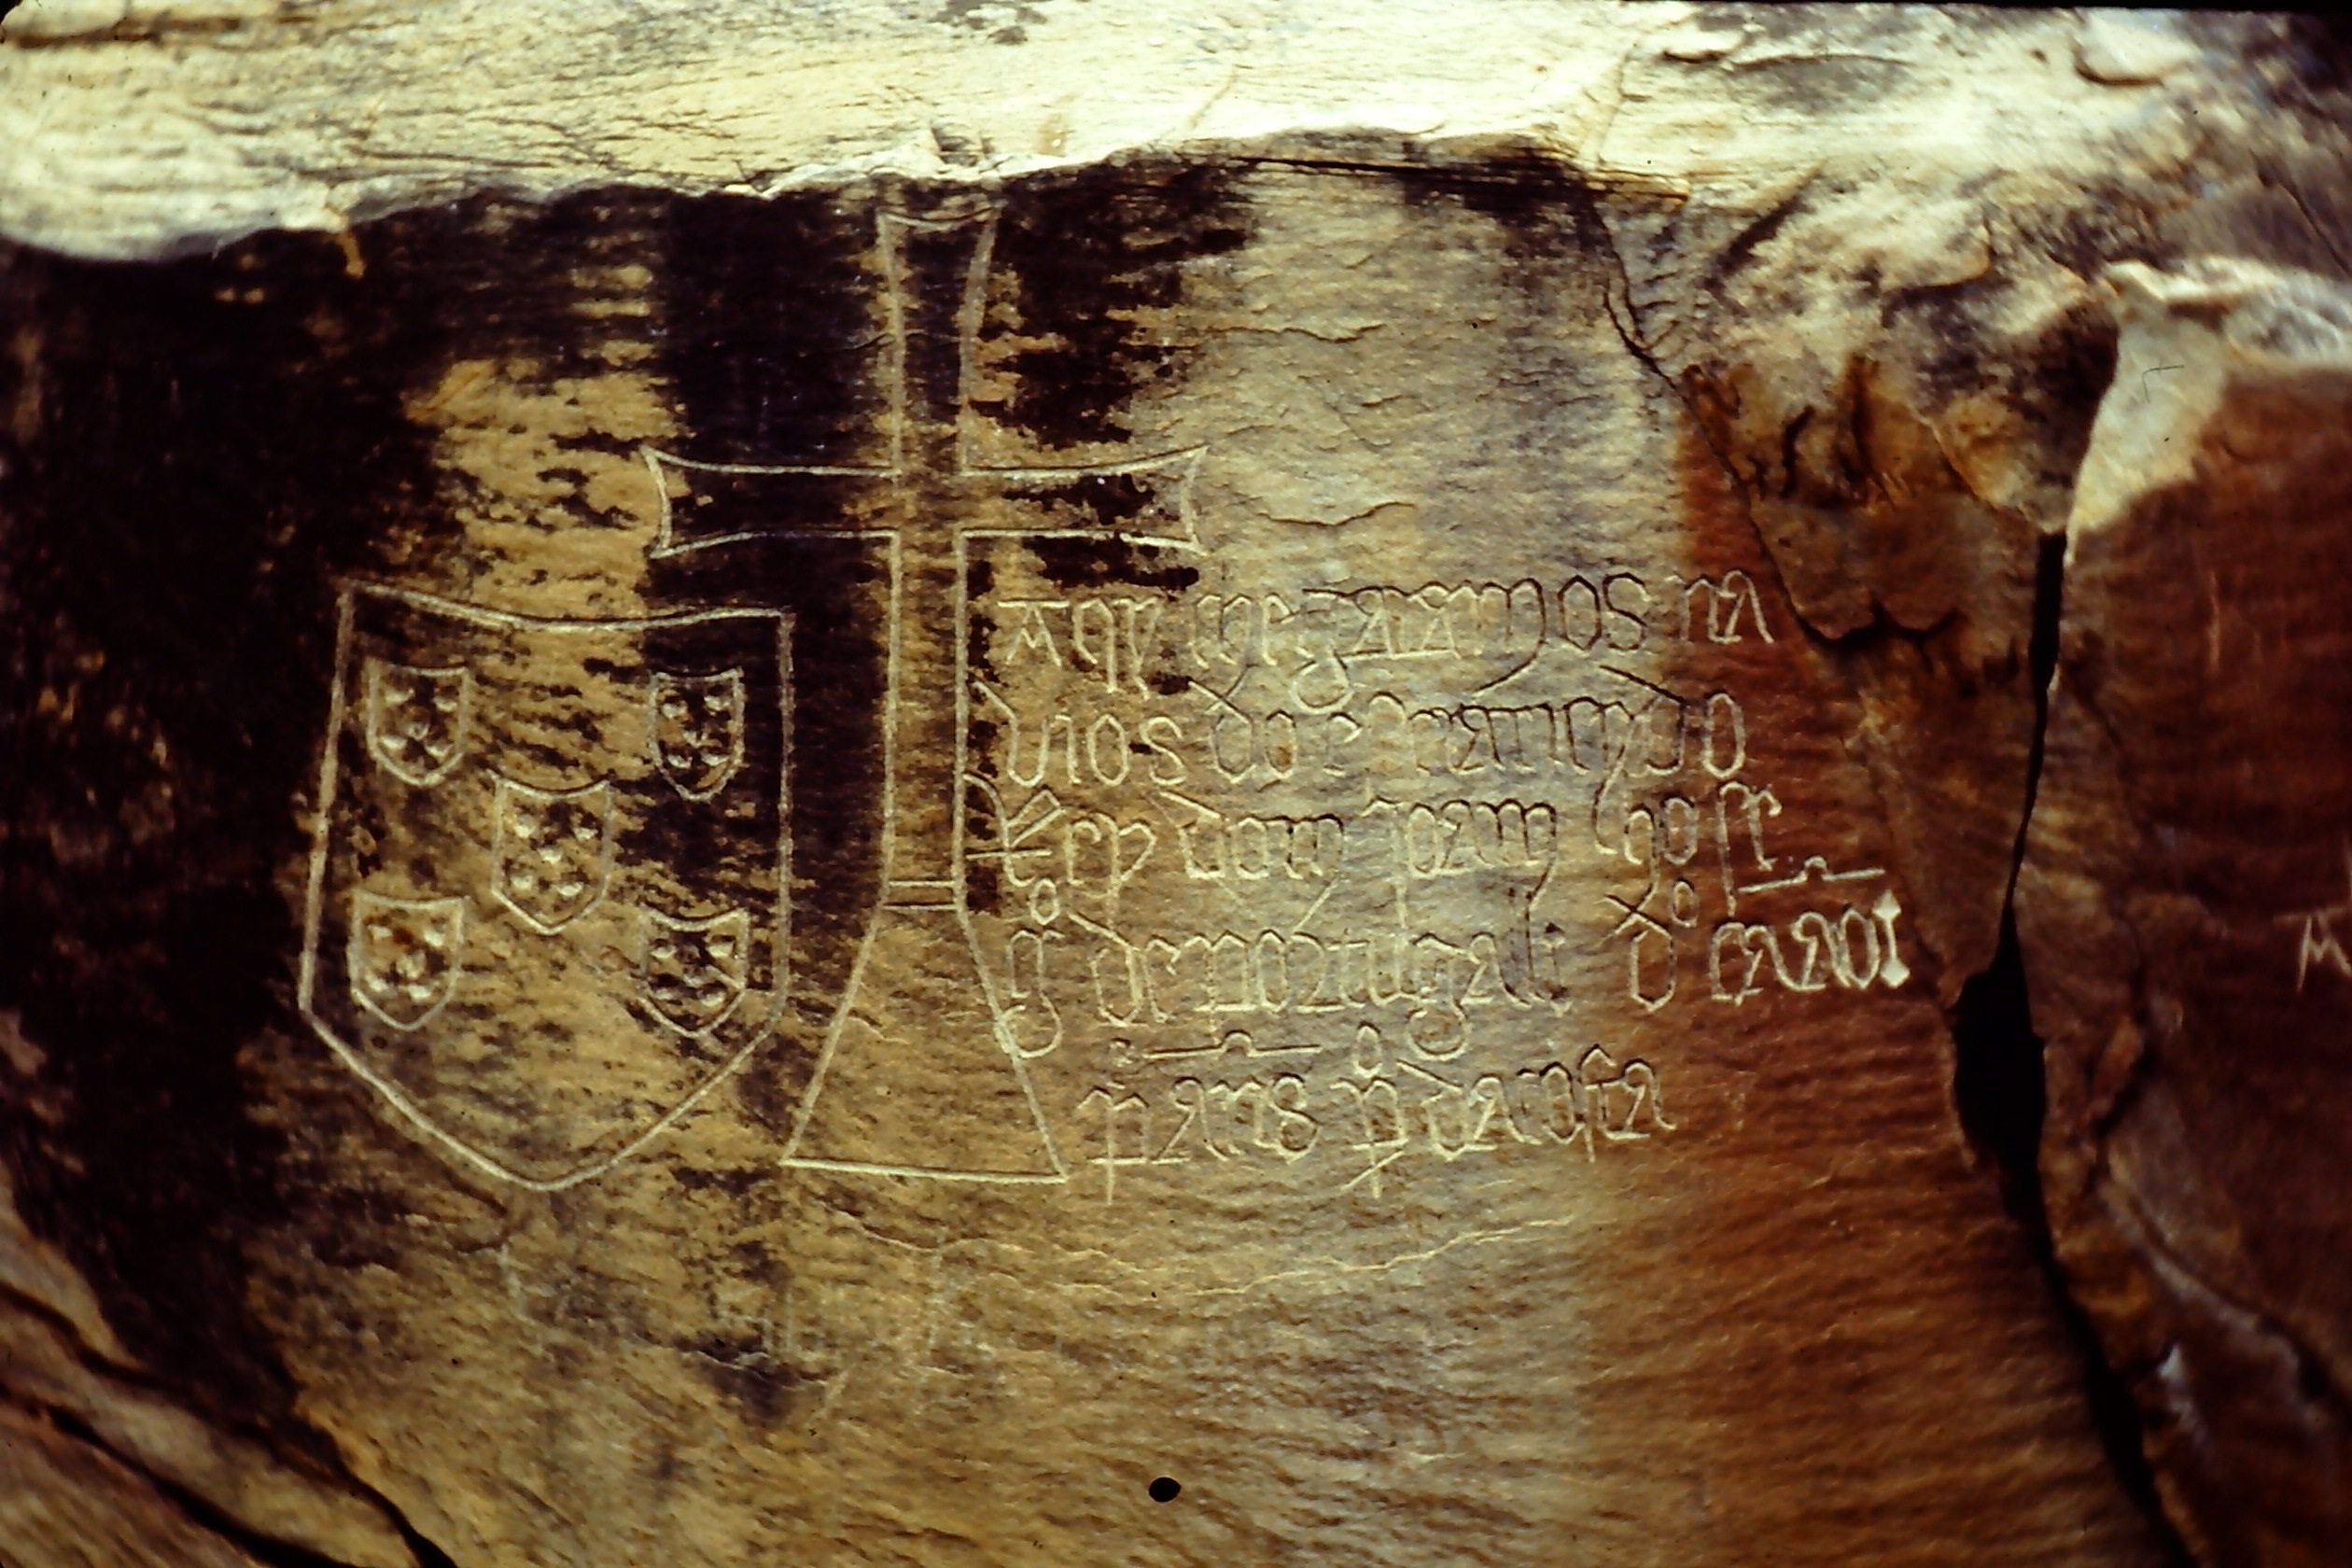 Aqy chegaram os na
vios do esclarecido
Rey dom joam ho se
gº de portugall : dº cãao
pº anes pº da costa